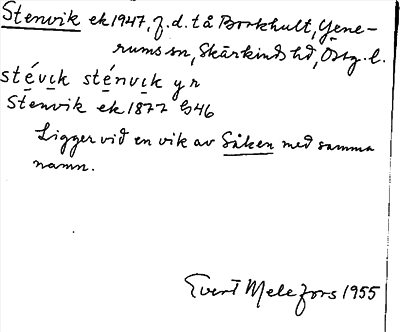 Stenvik ek 1947, f.d. t å Borkhult, Yxne-
rums sn, Skärkinds hd, Östg. l.
stévik sténvik y r
Stenvik ek 1877 G46
Ligger vid en vik av Såken med samma
namn.
Evert Melefors 1955